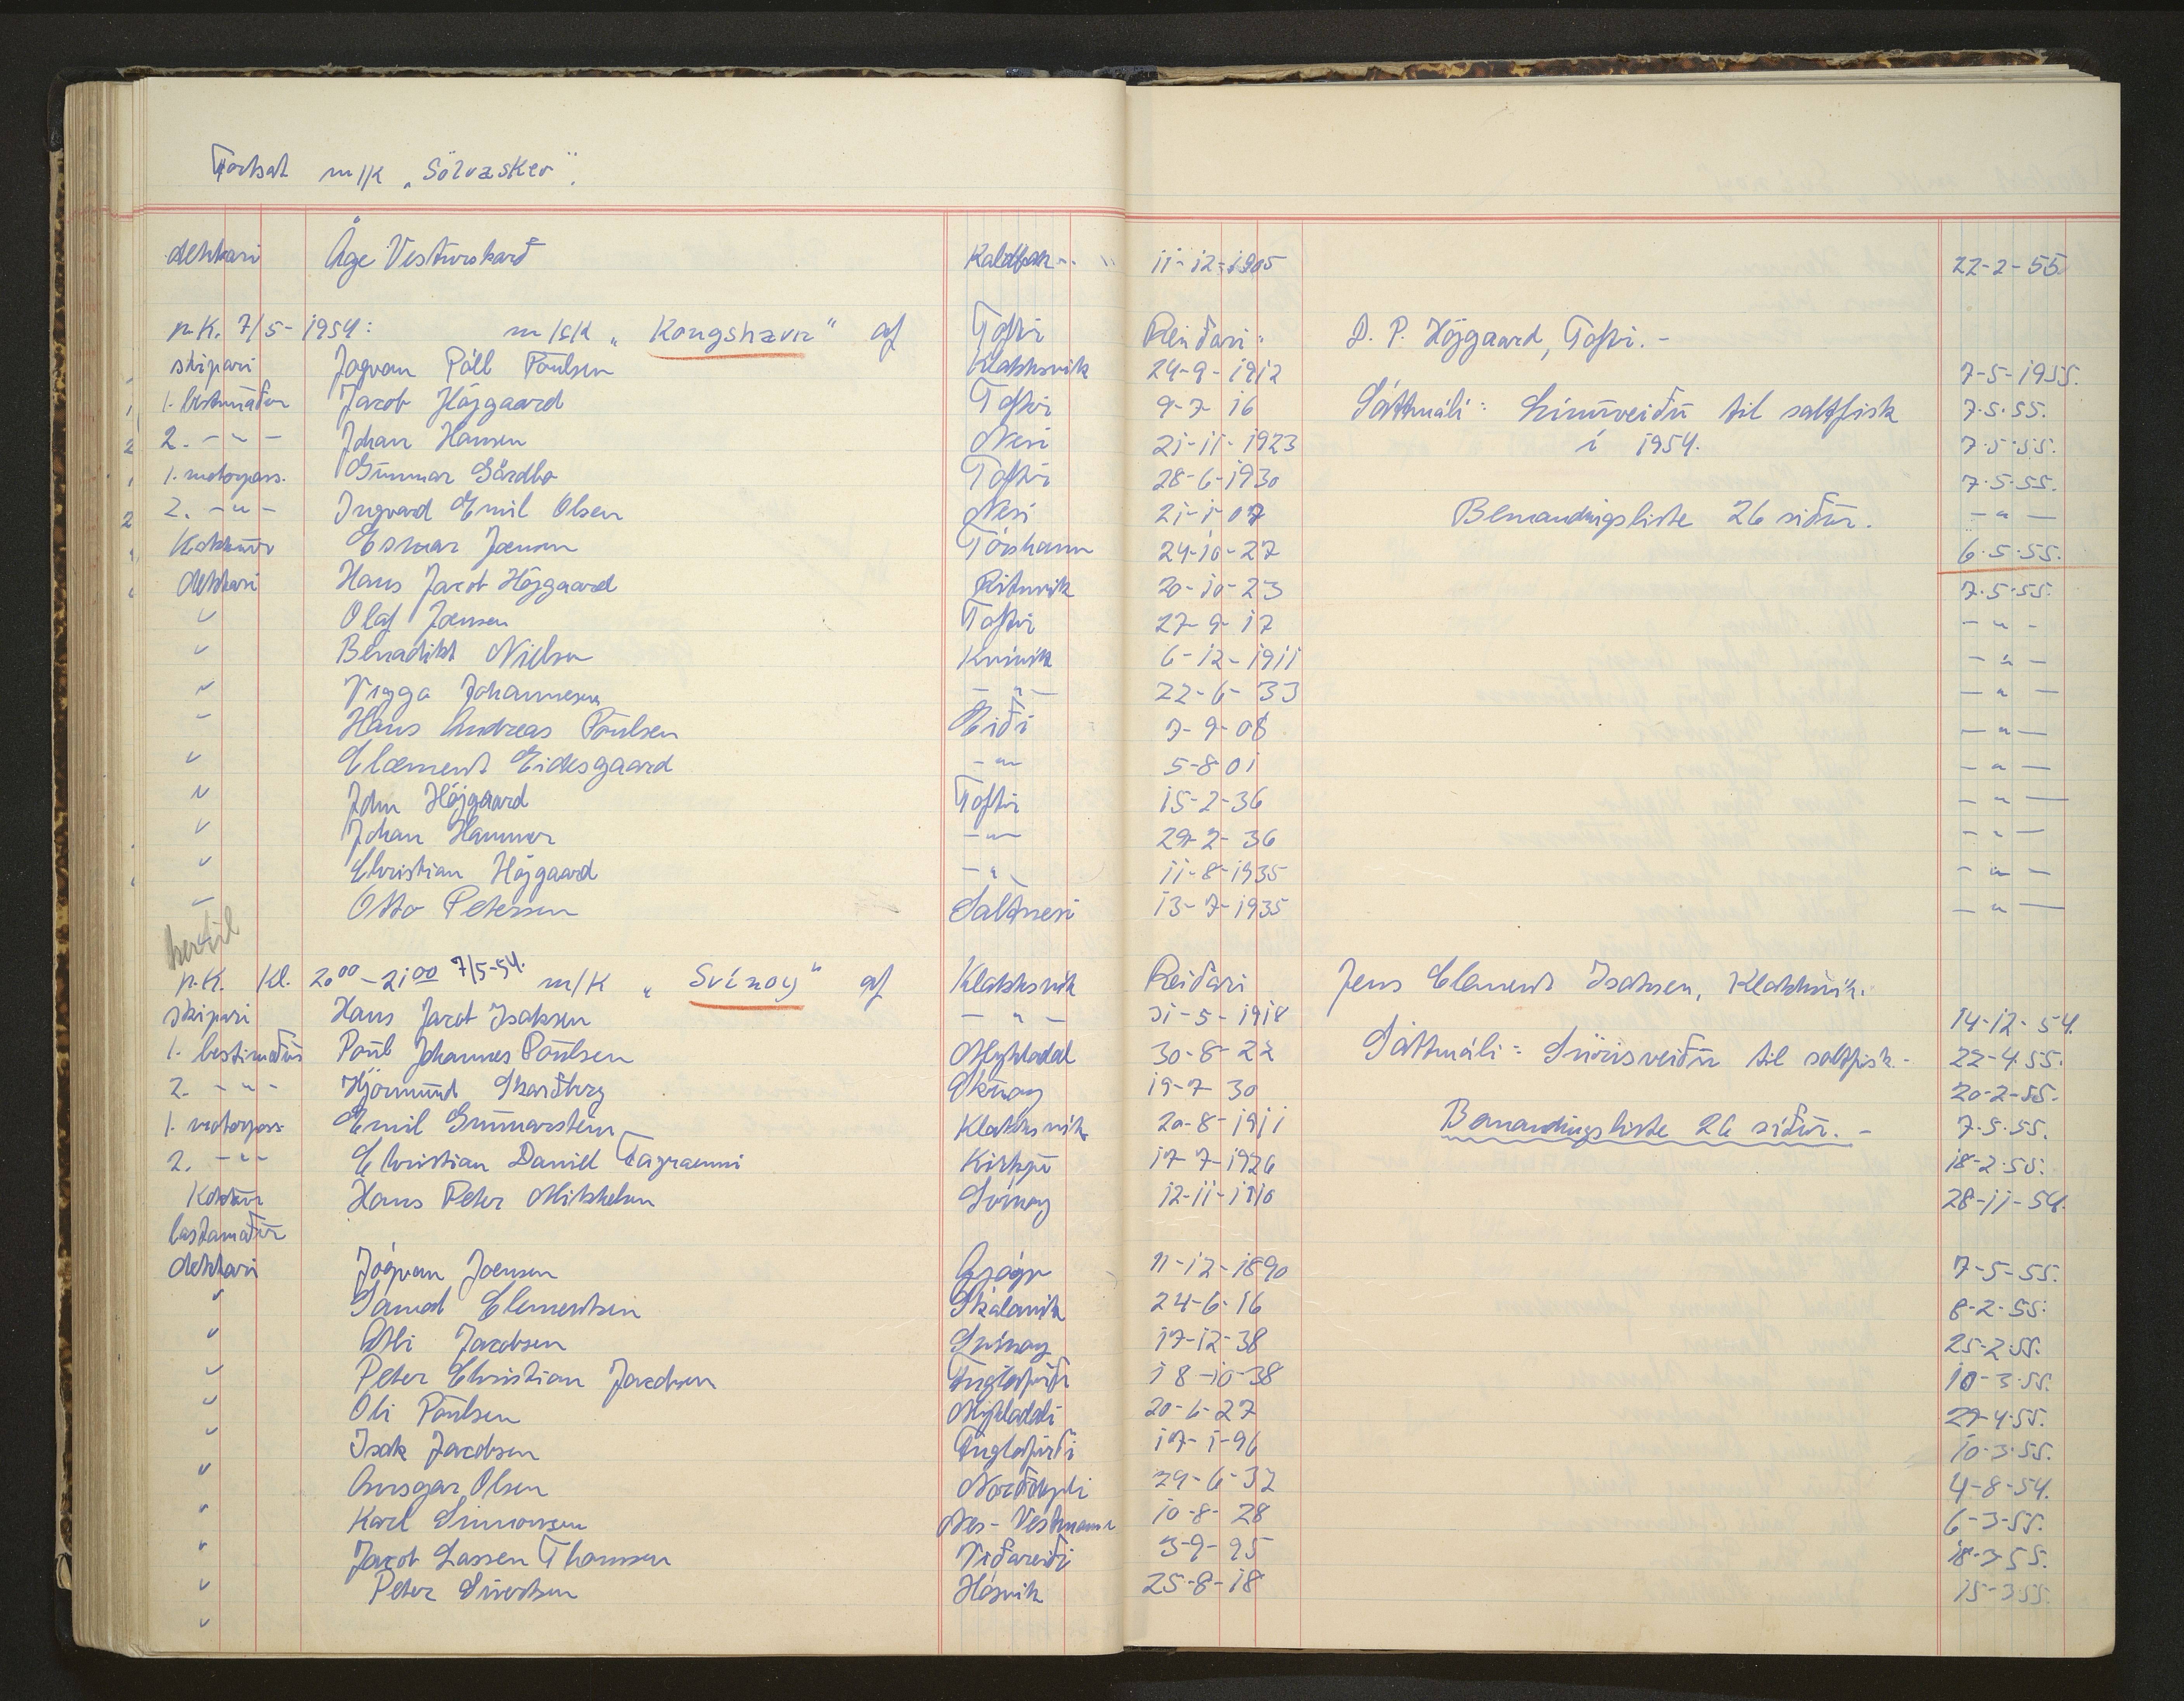 Fortsat m/k „Sölvasker“.
dekkari Åge Vesturskarð Kaldbak 11-12-1905 22-2-55
p.k. 7/5-1954: m/sk „Kongshavn“ af Toftir Reiðari: D. P. Höjgaard, Toftir.-
skipari Jogvan Páll Poulsen Klakksvik 24-9-1912 7-5-1955.
1. bestmaður Jacob Höjgaard Toftir 9-7 16 Sáttmáli: Linuveiðu til saltfisk 7.5.55.
2. -"- Johan Hansen Nesi 21-11-1923 í 1954. 7.5.55.
1. motorpass. Gunnar Gärdbo Toftir 28-6-1930 7.5.55.
2. -"- Ingvard Emil Olsen Nesi 21-1-07 Bemandingsliste 26 siður. -"-
Kokkur Esmar Joensen Tórshavn 24-10-27 6.5.55.
dekkari Hans Jacob Höjgaard Rituvik 20-10-23 7.5.55.
" Olaf Joensen Toftir 27-9-17 -"-
" Benadikt Nielsen Kvivik 6-12-1911 -"-
" Viggo Johannesen -"- 22-6-33 -"-
" Hans Andreas Poulsen Eiði 7-9-08 -"-
" Clement Eidesgaard -"- 5-8 01 -"-
" John Höjgaard Toftir 15-2-36 -"-
" Johan Hammer -"- 29-2-36 -"-
" Christian Höjgaard -"- 11-8-1935 -"-
" Otto Petersen Saltnesi 13-7-1935 -"-
hertil
p.k. Kl. 20⁰⁰-21⁰⁰ 7/5-54. m/k „Svínoy“ af Klakksvik Reiðari Jens Clement Isaksen, Klakksvik.
skipari Hans Jacob Isaksen -"- 31-5-1918 14-12-54.
1. bestimaður Poul Johannes Poulsen Mykladal 30-8-22 Sáttmáli: Snörisveiðu til saltfisk.- 22-4.55.
2. -"- Hjörmund Skarðberg Skuoy 19-7 30 20-2-55.
1. motorpass. Emil Gunnarstein Klakksvik 20-8-1911 Bemandingsliste 26 siður.- 7.5.55.
2. -"- Christian Daniel Fagraenni Kirkju 17-7-1926 18-2.55.
Kokkur Hans Peter Mikkelsen Svinoy 12-11-1910 28-11-54.
lastamaður
dekkari Jógvan Joensen Gjógv 11-12-1890 7-5-55.
" Sámal Clementsen Skálavik 24-6-16 8-2-55.
" Olli Jacobsen Svinoy 17-12-38 25-2.55.
" Peter Christian Jacobsen Fuglafirði 18-10-38 10-3.55.
" Oli Poulsen Mykladali 20-6-27 29-4.55.
" Isak Jacobsen Fuglafirði 17-1-96 10-3.55.
" Ansgar Olsen Norðdepli 29-6-32 4-8-54.
" Karl Simonsen Nes-Vestmanna 10-8-28 6-3-55.
" Jacob Lassen Thomsen Viðareiði 3-9-95 18-3-55.
" Peter Sivertsen Hósvik 25-8-18 15-3.55.
"